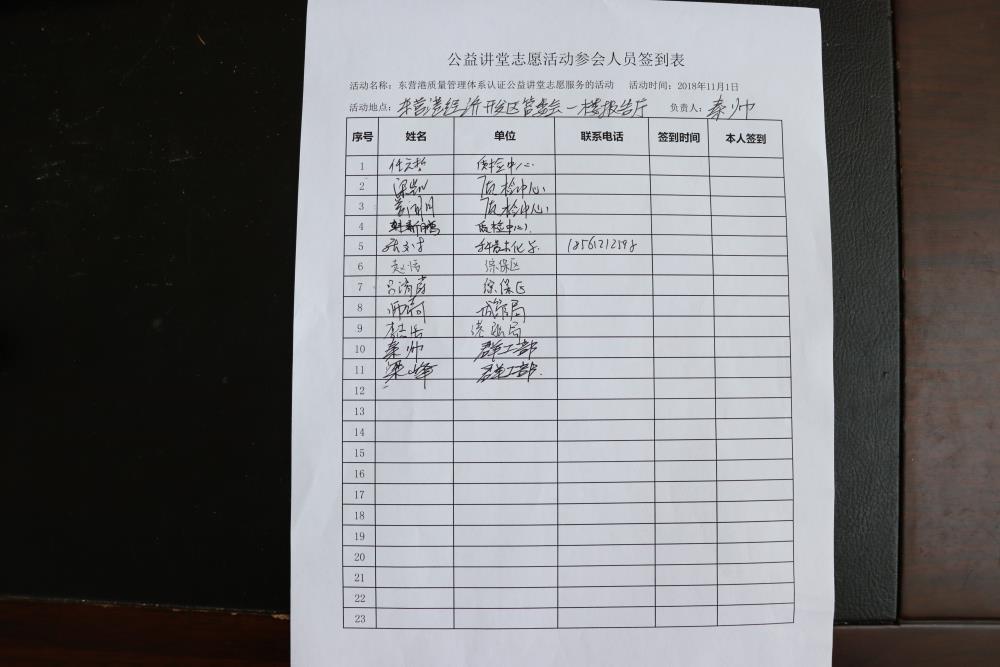 公益讲堂志愿活动参会人员签到表
活动名称：东营港质量管理体系认证公益讲堂志愿服务的活动 活动时间：2018年11月1日
活动地点：东营港经济开发区管委会一楼报告厅 负责人：秦帅
序号 姓名 单位 联系电话 签到时间 本人签到
1 任文哲 质检中心
2 梁凯 质检中心
3 质检中心
4 质检中心
5
6 赵倩 综保区
7 吕济南 综保区
8 城管局
9 李岳 港航局
10 秦帅 群工部
11 梁峰 群工部
12
13
14
15
16
17
18
19
20
21
22
23